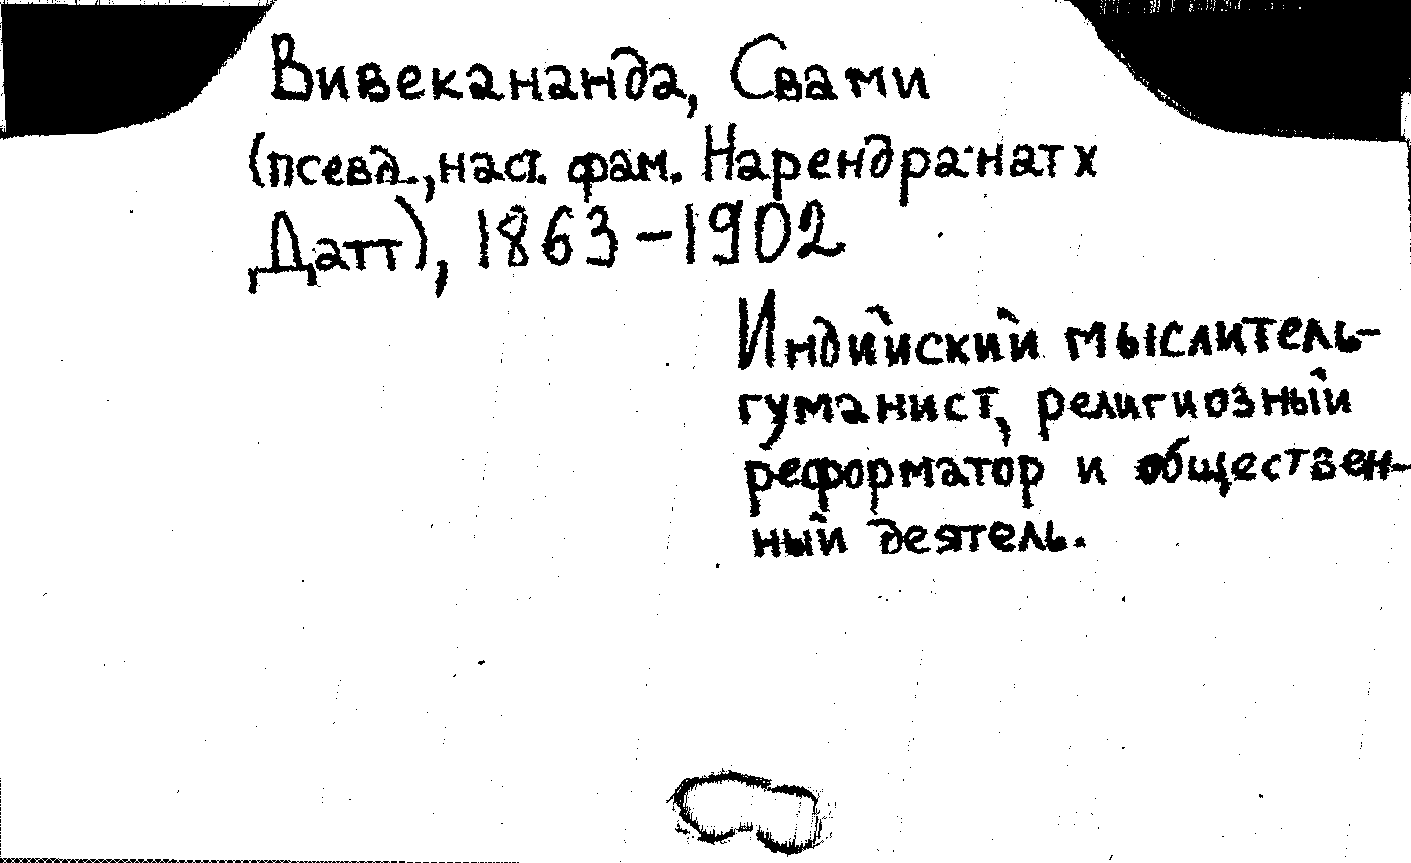 Вивекананда, Свами
(псевд., наст. фам. Нарендранатх
Датт), 1863-1902
Индийский мыслитель-
гуманист, религиозный
реформатор и обществен-
ный деятель.